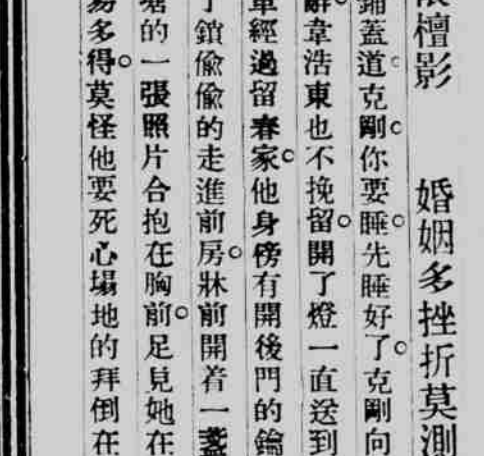 檀影　婚姻多挫折莫測
鋪蓋道。克剛。你要睡。先睡好了。克剛向
辭韋浩東也不挽留。開了燈一直送到
車經過留春家。他身傍有開後門的鑰
了鎖偸偸的走進前房。牀前開着一盞
的一張照片合抱在胸前。足見她在
易多得。莫怪他要死心塌地的拜倒在